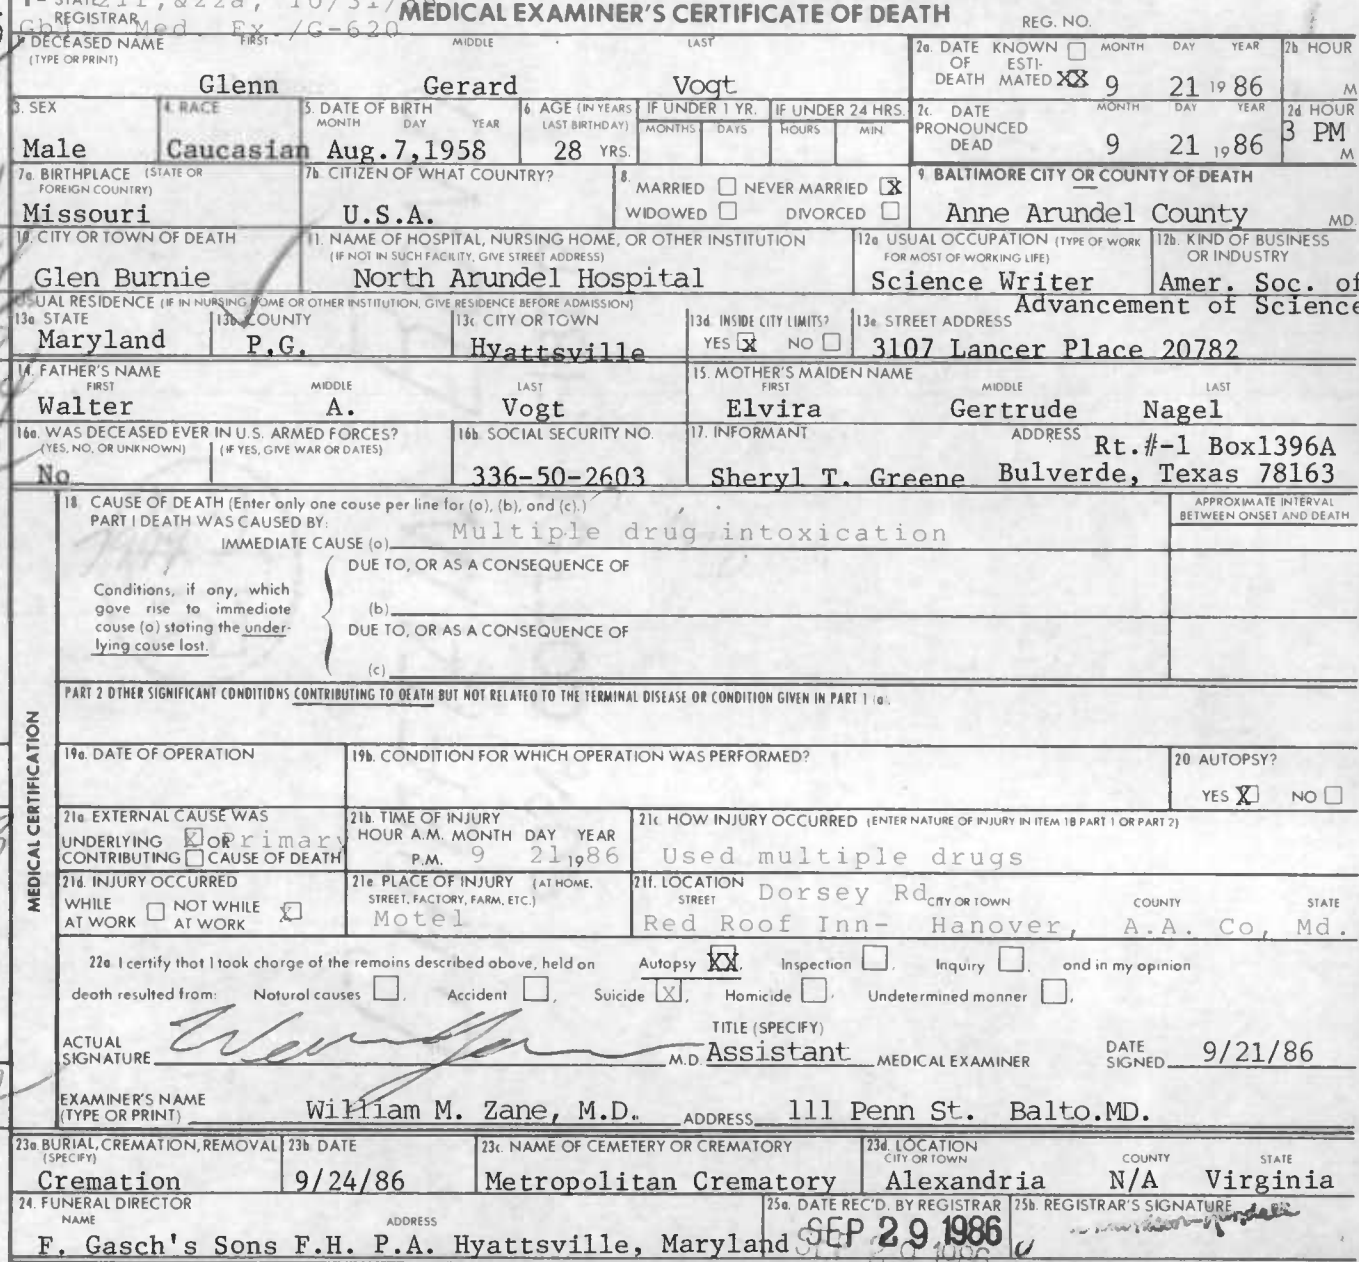 MEDICAL EXAMINER'S CERTIFICATE OF DEATH
REG. NO.
REGISTRAR
Med. Ex./G-620
DECEASED NAME FIRST MIDDLE LAST
(TYPE OR PRINT)
Glenn Gerard Vogt
2a. DATE OF DEATH KNOWN ☐ ESTI-MATED XX MONTH DAY YEAR 9 21 1986
2b HOUR M
3. SEX
Male
4. RACE
Caucasian
5. DATE OF BIRTH
MONTH DAY YEAR
Aug.7,1958
6 AGE (IN YEARS LAST BIRTHDAY)
28 YRS.
IF UNDER 1 YR.
MONTHS DAYS
IF UNDER 24 HRS.
HOURS MIN.
2c. DATE PRONOUNCED DEAD MONTH DAY YEAR 9 21 1986
2d HOUR
3 PM M
7a. BIRTHPLACE (STATE OR FOREIGN COUNTRY)
Missouri
7b. CITIZEN OF WHAT COUNTRY?
U.S.A.
8. MARRIED ☐ NEVER MARRIED ☒
WIDOWED ☐ DIVORCED ☐
9. BALTIMORE CITY OR COUNTY OF DEATH
Anne Arundel County MD.
10. CITY OR TOWN OF DEATH
Glen Burnie
11. NAME OF HOSPITAL, NURSING HOME, OR OTHER INSTITUTION
(IF NOT IN SUCH FACILITY, GIVE STREET ADDRESS)
North Arundel Hospital
12a USUAL OCCUPATION (TYPE OF WORK FOR MOST OF WORKING LIFE)
Science Writer
12b. KIND OF BUSINESS OR INDUSTRY
Amer. Soc. of
Advancement of Science
USUAL RESIDENCE (IF IN NURSING HOME OR OTHER INSTITUTION, GIVE RESIDENCE BEFORE ADMISSION)
13a STATE
Maryland
13b. COUNTY
P.G.
13c CITY OR TOWN
Hyattsville
13d INSIDE CITY LIMITS?
YES ☒ NO ☐
13e STREET ADDRESS
3107 Lancer Place 20782
14. FATHER'S NAME
FIRST MIDDLE LAST
Walter A. Vogt
15. MOTHER'S MAIDEN NAME
FIRST MIDDLE LAST
Elvira Gertrude Nagel
16a. WAS DECEASED EVER IN U.S. ARMED FORCES?
(YES, NO, OR UNKNOWN) (IF YES, GIVE WAR OR DATES)
No
16b. SOCIAL SECURITY NO.
336-50-2603
17. INFORMANT ADDRESS
Sheryl T. Greene Rt.#-1 Box1396A
Bulverde, Texas 78163
18. CAUSE OF DEATH (Enter only one cause per line for (a), (b), and (c).)
PART I DEATH WAS CAUSED BY:
IMMEDIATE CAUSE (a) Multiple drug intoxication
APPROXIMATE INTERVAL BETWEEN ONSET AND DEATH
Conditions, if any, which gave rise to immediate cause (a) stating the underlying cause last.
DUE TO, OR AS A CONSEQUENCE OF
(b)
DUE TO, OR AS A CONSEQUENCE OF
(c)
PART 2 OTHER SIGNIFICANT CONDITIONS CONTRIBUTING TO DEATH BUT NOT RELATED TO THE TERMINAL DISEASE OR CONDITION GIVEN IN PART 1 (a).
MEDICAL CERTIFICATION
19a. DATE OF OPERATION
19b. CONDITION FOR WHICH OPERATION WAS PERFORMED?
20 AUTOPSY?
YES ☒ NO ☐
21a EXTERNAL CAUSE WAS
UNDERLYING ☒ OR Primary
CONTRIBUTING ☐ CAUSE OF DEATH
21b. TIME OF INJURY
HOUR A.M. MONTH DAY YEAR
P.M. 9 21 1986
21c HOW INJURY OCCURRED (ENTER NATURE OF INJURY IN ITEM 18 PART 1 OR PART 2)
Used multiple drugs
21d. INJURY OCCURRED
WHILE AT WORK ☐ NOT WHILE AT WORK ☒
21e PLACE OF INJURY (AT HOME, STREET, FACTORY, FARM, ETC.)
Motel
21f. LOCATION
STREET CITY OR TOWN COUNTY STATE
Dorsey Rd
Red Roof Inn- Hanover, A.A. Co, Md.
22a I certify that I took charge of the remains described above, held on Autopsy XX, Inspection ☐, Inquiry ☐, and in my opinion
death resulted from: Natural causes ☐, Accident ☐, Suicide ☒, Homicide ☐, Undetermined manner ☐,
ACTUAL SIGNATURE M.D.
TITLE (SPECIFY)
Assistant MEDICAL EXAMINER
DATE SIGNED 9/21/86
EXAMINER'S NAME (TYPE OR PRINT) William M. Zane, M.D. ADDRESS 111 Penn St. Balto.MD.
23a. BURIAL, CREMATION, REMOVAL (SPECIFY)
Cremation
23b DATE
9/24/86
23c. NAME OF CEMETERY OR CREMATORY
Metropolitan Crematory
23d. LOCATION
CITY OR TOWN COUNTY STATE
Alexandria N/A Virginia
24. FUNERAL DIRECTOR
NAME ADDRESS
F. Gasch's Sons F.H. P.A. Hyattsville, Maryland
25a. DATE REC'D. BY REGISTRAR
SEP 29 1986
25b. REGISTRAR'S SIGNATURE